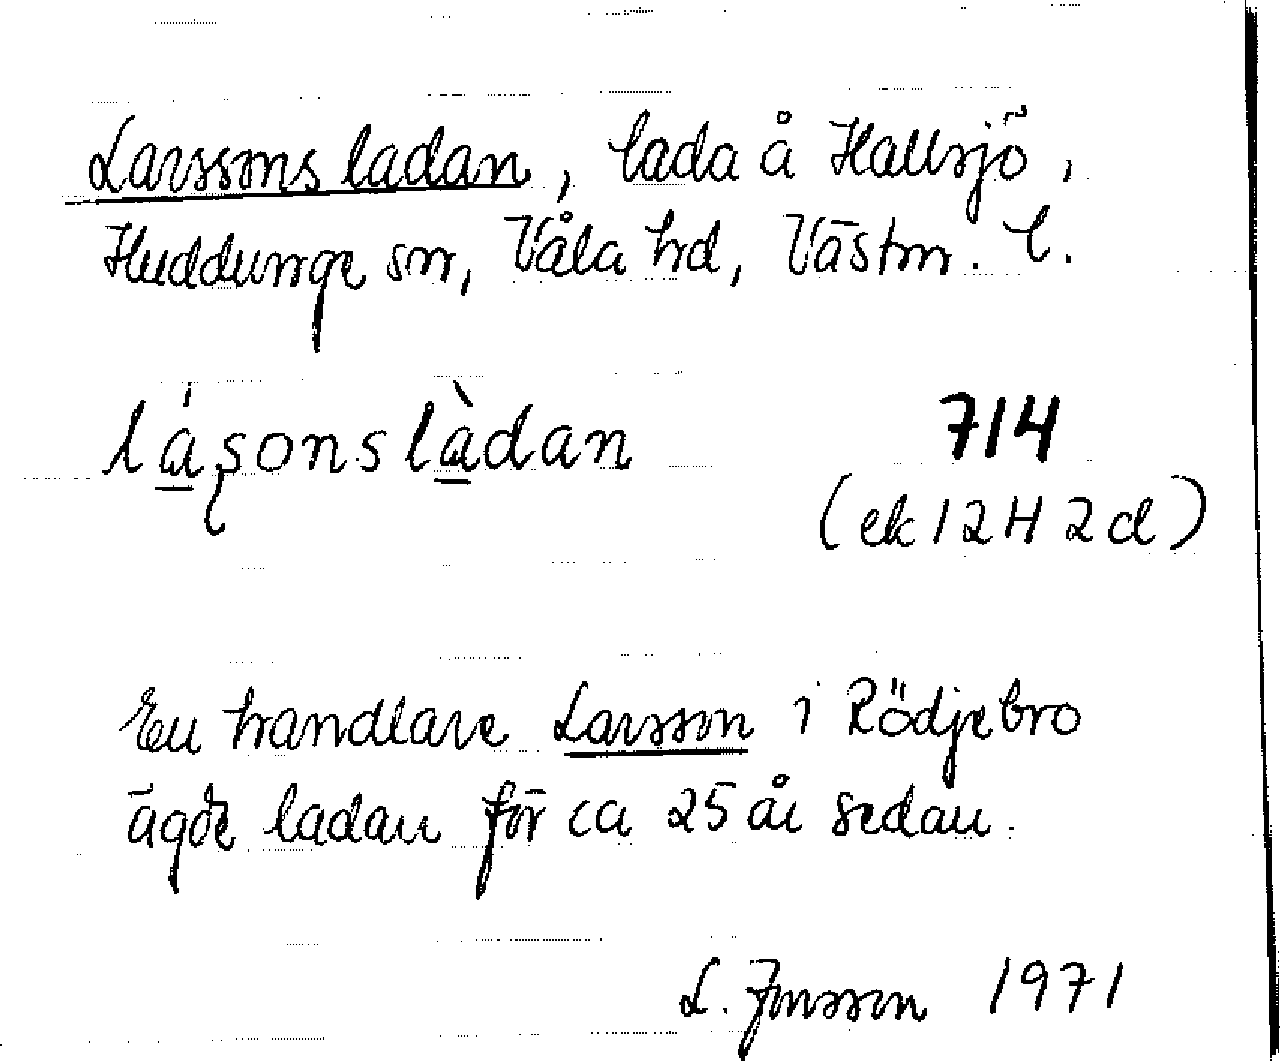 Larssons ladan, lada å Hallsjö,
Huddunge sn, Våla hd, Västm. l.
lá̱ʂonslà̱dan
714
(ek 12 H 2 d)
En handlare Larsson i Rödjebro
ägde ladan för ca 25 år sedan.
L. Jonsson 1971